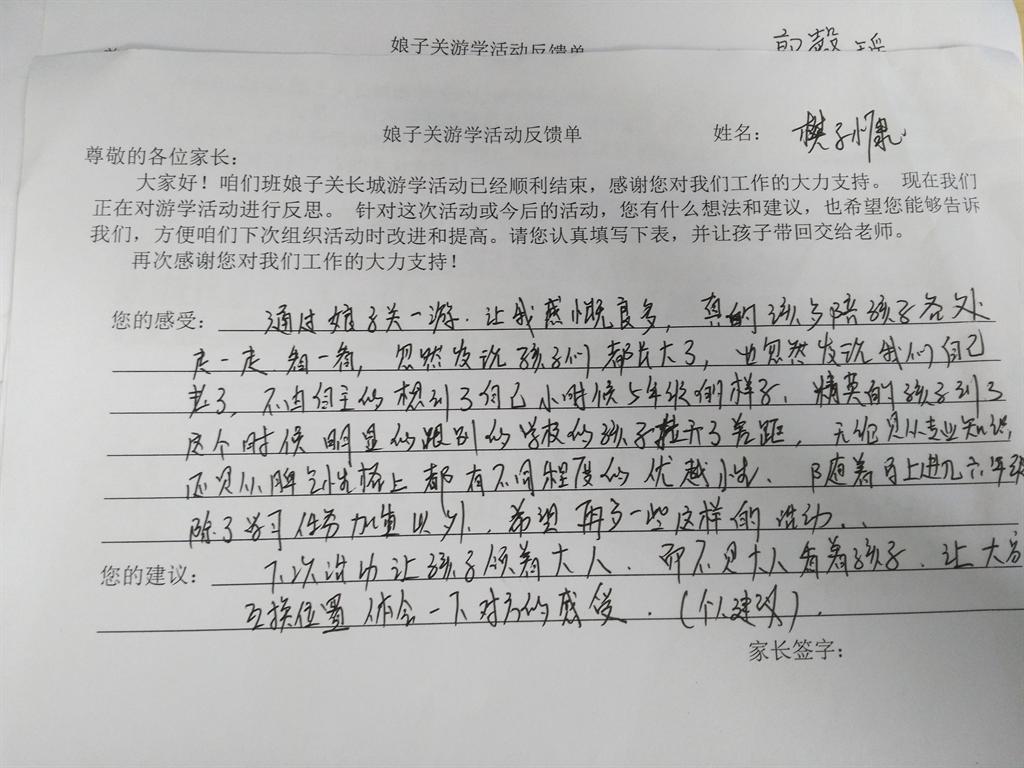 娘子关游学活动反馈单
娘子关游学活动反馈单 姓名： 樊子
尊敬的各位家长：
大家好！咱们班娘子关长城游学活动已经顺利结束，感谢您对我们工作的大力支持。 现在我们
正在对游学活动进行反思。 针对这次活动或今后的活动，您有什么想法和建议，也希望您能够告诉
我们，方便咱们下次组织活动时改进和提高。请您认真填写下表，并让孩子带回交给老师。
再次感谢您对我们工作的大力支持！
您的感受： 通过娘子关一游.让我感慨良多，真的该多陪孩子各处
走一走 看一看，忽然发现孩子们都长大了，也忽然发现我们自己
老了，不由自主的想到了自己小时候5年级的样子。精英的孩子到了
这个时候明显的跟别的学校的孩子拉开了差距，无论是从专业知识，
还是从脾气性格上都有不同程度的优越性、随着马上进入六年级
除了学习任务加重以外，希望再多一些这样的活动..
您的建议： 下次活动让孩子领着大人.而不是大人看着孩子.让大家
互换位置体会一下对方的感受.（个人建议）.
家长签字：